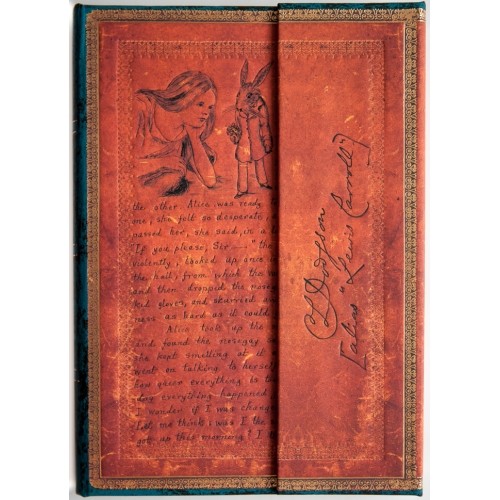 the other. Alice was ready
one, she felt so desperate,
passed her, she said, in a l
"If you please, Sir —" the
violently, looked up once
the hall, from which the vo
and then dropped the noseg
kid gloves, and skurried away
ness as hard as it could
Alice took up the
and found the nosegay
she kept smelling at it
went on talking to hersel
how queer everything is to
day everything happened
I wonder if I was chang
Let me think: was I the
got up this morning? I
CL Dodgson
[alias "Lewis Carroll"]